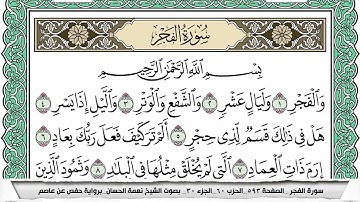 سُورَةُ الفَجْرِ
بِسْمِ اللَّهِ الرَّحْمَٰنِ الرَّحِيمِ
وَالْفَجْرِ ١ وَلَيَالٍ عَشْرٍ ٢ وَالشَّفْعِ وَالْوَتْرِ ٣ وَاللَّيْلِ إِذَا يَسْرِ ٤
هَلْ فِي ذَٰلِكَ قَسَمٌ لِّذِي حِجْرٍ ٥ أَلَمْ تَرَ كَيْفَ فَعَلَ رَبُّكَ بِعَادٍ ٦
إِرَمَ ذَاتِ الْعِمَادِ ٧ الَّتِي لَمْ يُخْلَقْ مِثْلُهَا فِي الْبِلَادِ ٨ وَثَمُودَ الَّذِينَ
سورة الفجر _ الصفحة ٥٩٣_ الحزب ٦٠_ الجزء ٣٠_ بصوت الشيخ نعمة الحسان_ برواية حفص عن عاصم